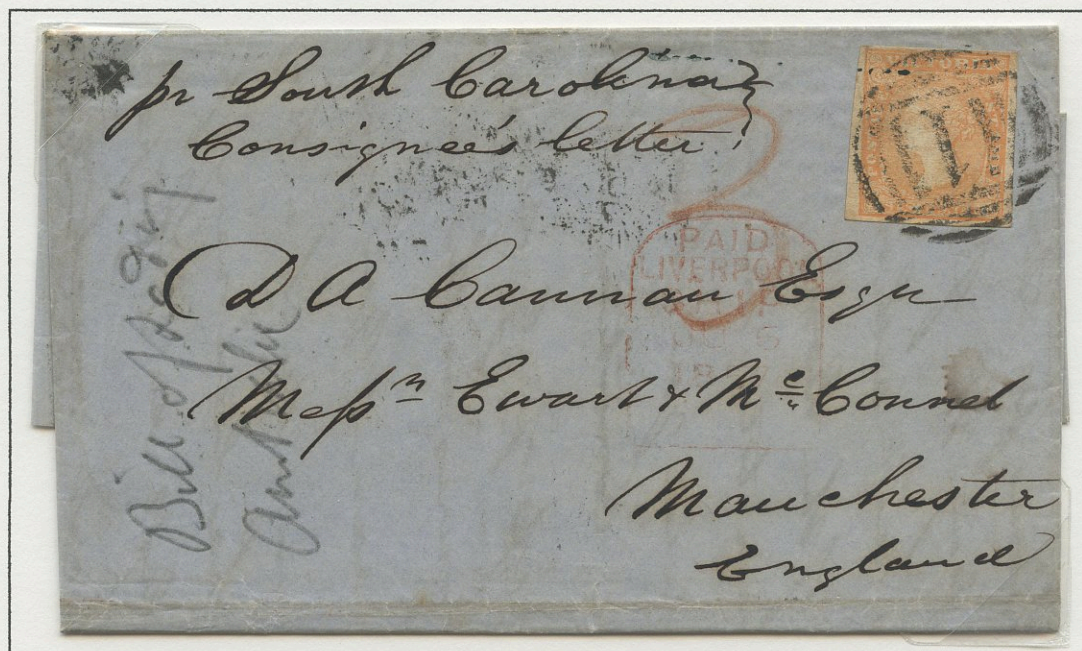 pr South Carolina
Consignee's letter
2
VICTORIA
1
PAID
LIVERPOOL
SHIP
D A Cannan Esqre
Messrs Ewart & Mc Connel
Manchester
England
Bill of